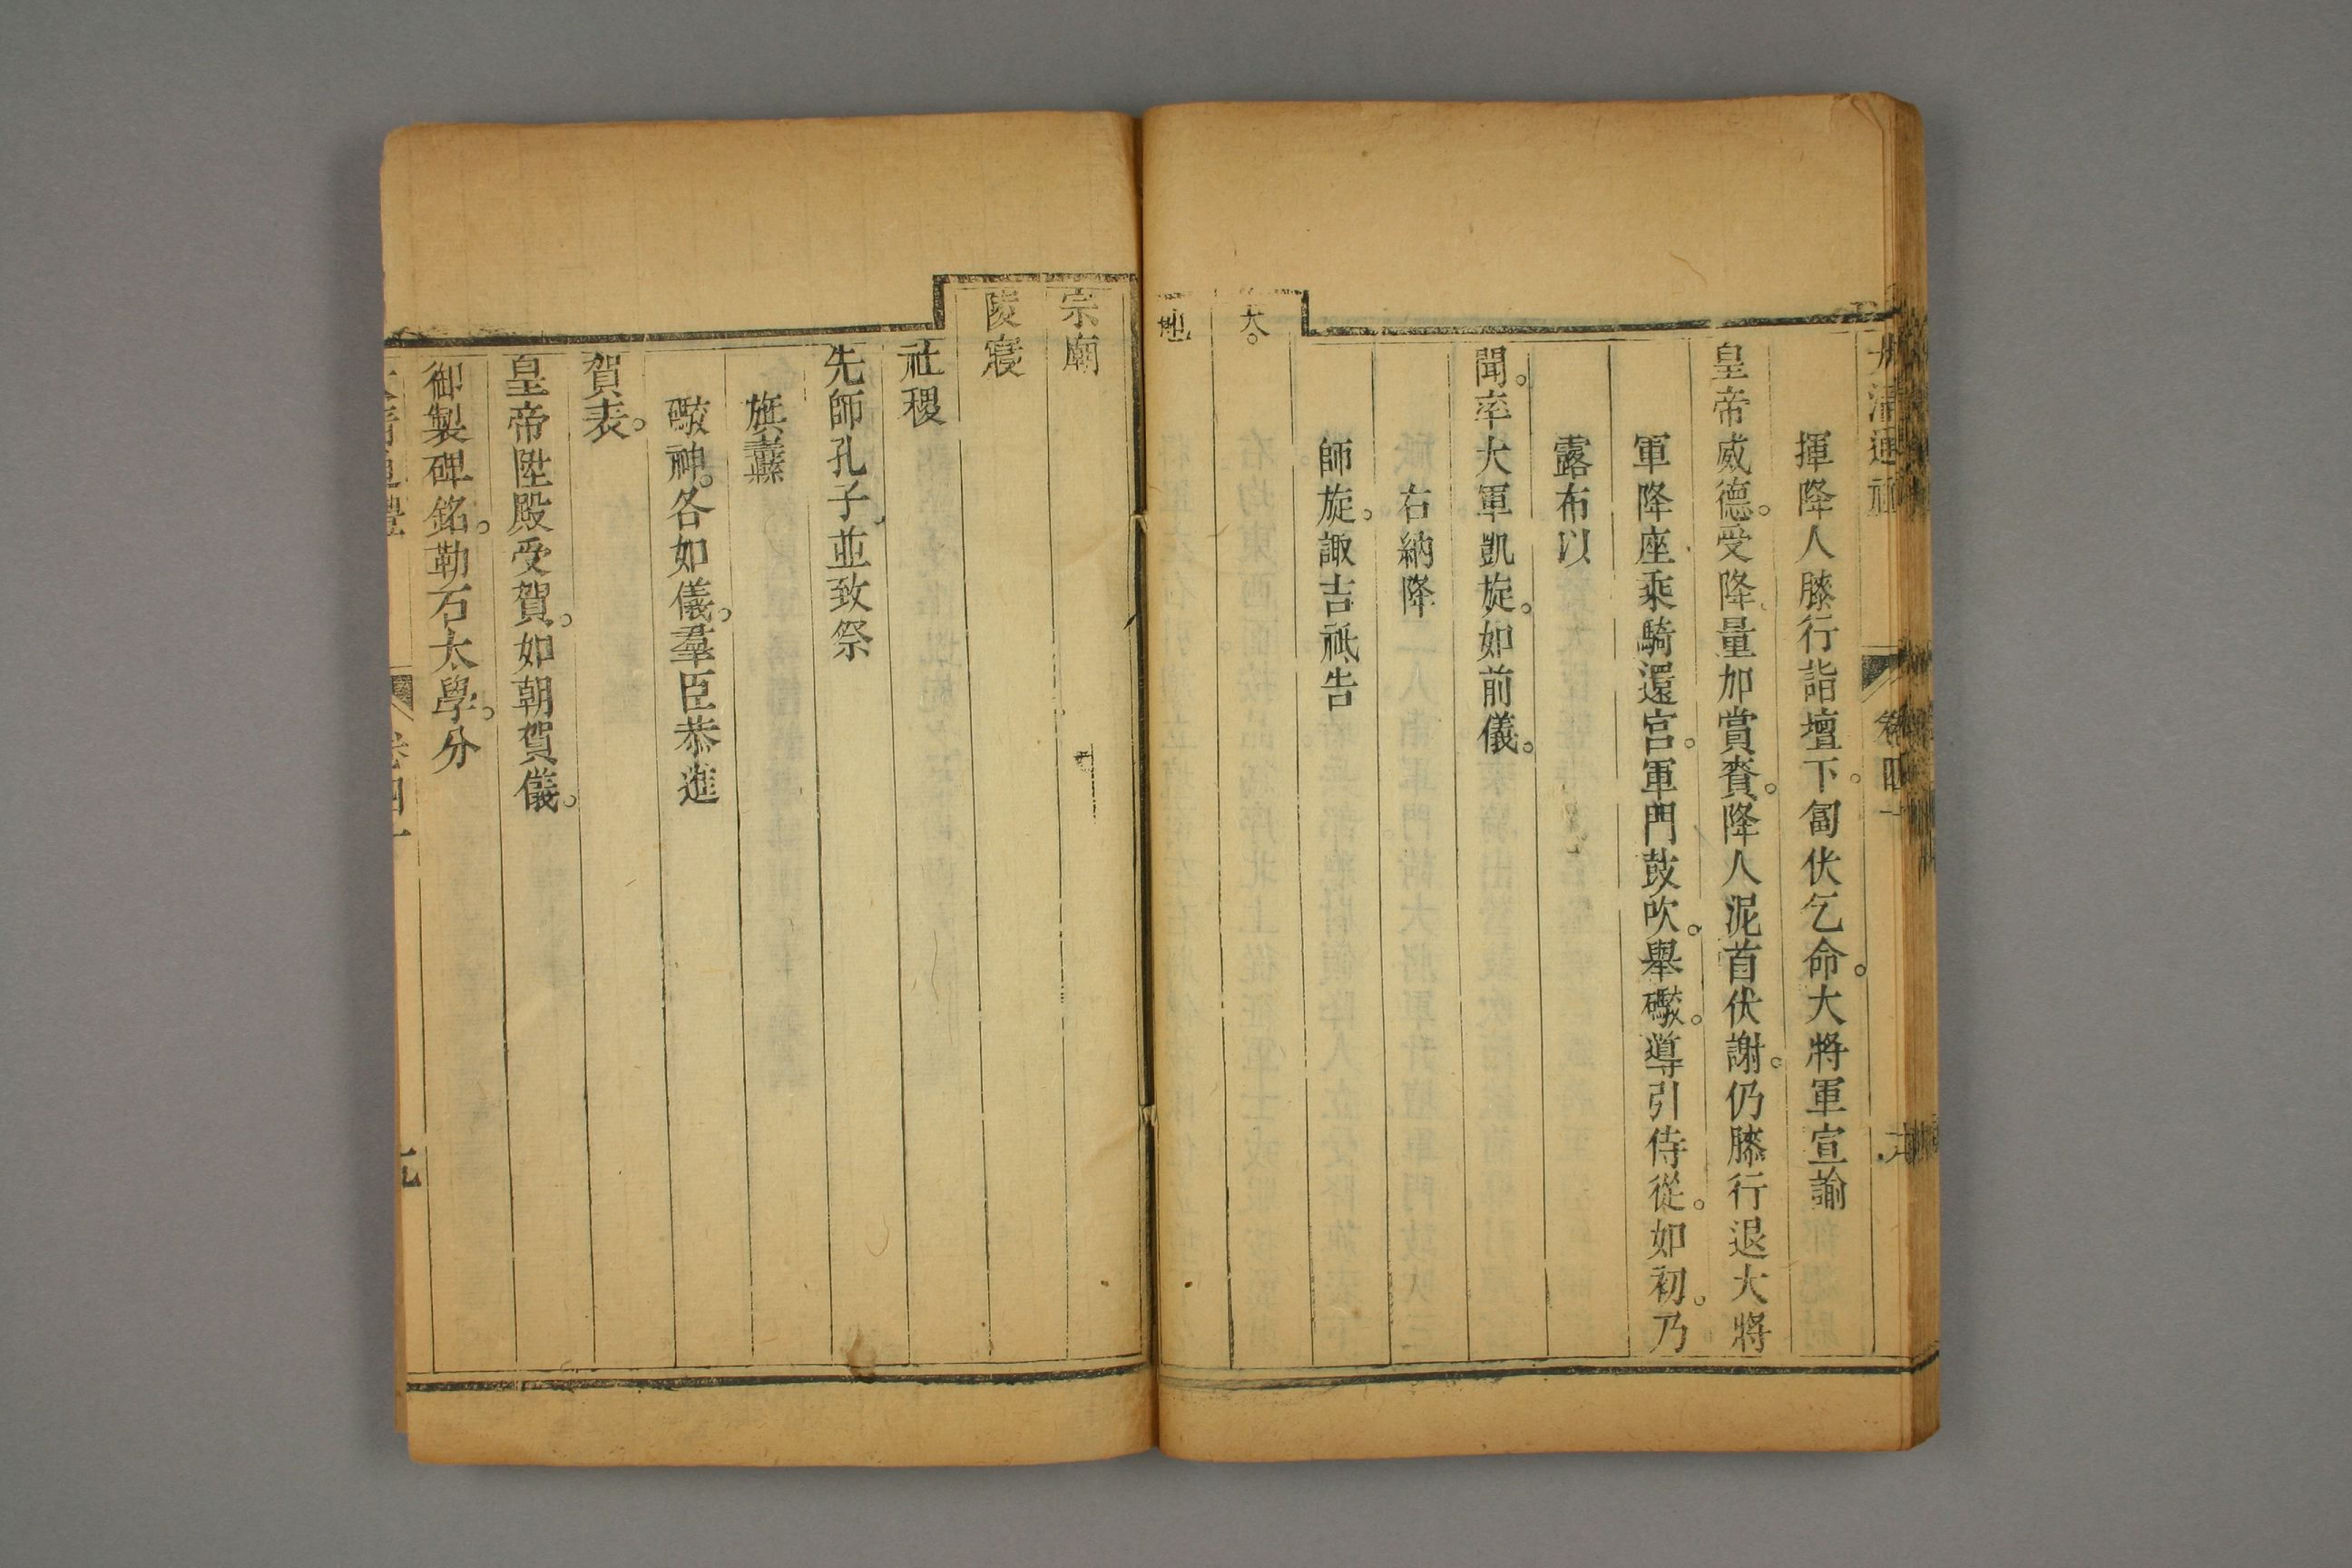 大清通禮 卷四十
揮降人膝行詣壇下。匐伏乞命。大將軍宣諭
皇帝威德。受降量加賞賚。降人泥首伏謝。仍膝行退大將
軍降座乘騎還宮。軍門鼓吹。舉礮。導引侍從。如初。乃
露布以
聞。率大軍凱旋。如前儀。
右納降
師旋。諏吉祗告
天。
地
宗廟
陵寢
社稷
先師孔子並致祭
旗纛
礮神。各如儀。羣臣恭進
賀表。
皇帝陞殿受賀。如朝賀儀。
御製碑銘。勒石太學。分
大清通禮 卷四十